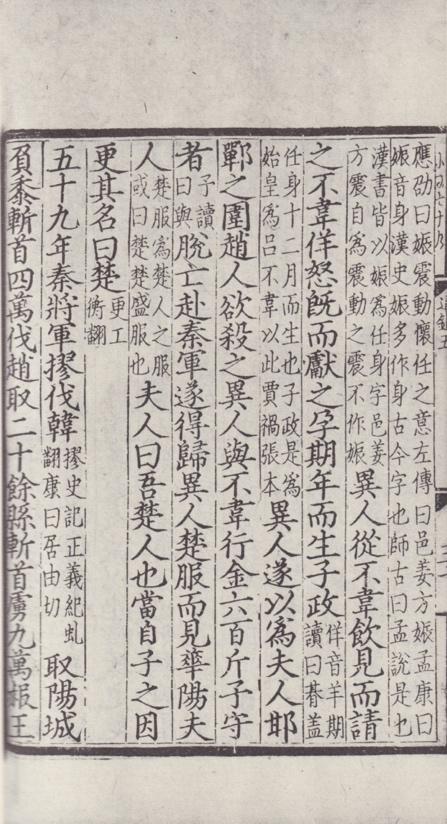 應劭曰娠震動懷任之意左傳曰邑姜方娠孟康曰
娠音身漢史娠多作身古今字也師古曰孟說是也
漢書皆以娠為任身字邑姜方震自為震動之震不作娠異人從不韋飲見而請
之不韋佯怒旣而獻之孕期年而生子政佯音羊期讀曰朞蓋
任身十二月而生也子政是為始皇為呂不韋以此賈禍張本異人遂以爲夫人邯
鄲之圍趙人欲殺之異人與不韋行金六百斤予守
者予讀曰與脫亡赴秦軍遂得歸異人楚服而見華陽夫
人楚服為楚人之服或曰楚楚盛服也夫人曰吾楚人也當自子之因
更其名曰楚更工衡翻
五十九年秦將軍摎伐韓摎史記正義紀虬翻康曰居由切取陽城
負黍斬首四萬伐趙取二十餘縣斬首虜九萬赧王